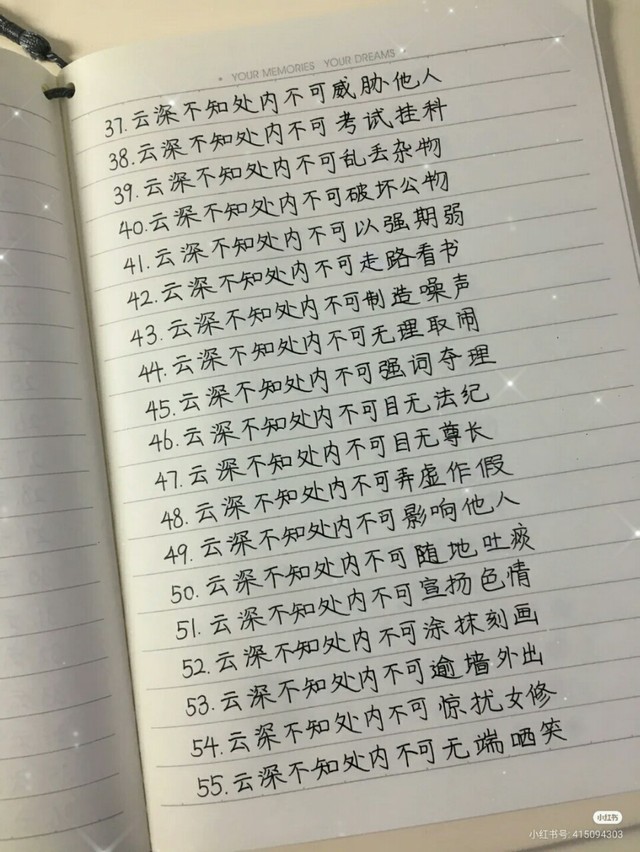 YOUR MEMORIES YOUR DREAMS
37.云深不知处内不可威胁他人
38.云深不知处内不可考试挂科
39.云深不知处内不可乱丢杂物
40.云深不知处内不可破坏公物
41.云深不知处内不可以强期弱
42.云深不知处内不可走路看书
43.云深不知处内不可制造噪声
44.云深不知处内不可无理取闹
45.云深不知处内不可强词夺理
46.云深不知处内不可目无法纪
47.云深不知处内不可目无尊长
48.云深不知处内不可弄虚作假
49.云深不知处内不可影响他人
50.云深不知处内不可随地吐痰
51.云深不知处内不可宣扬色情
52.云深不知处内不可涂抹刻画
53.云深不知处内不可逾墙外出
54.云深不知处内不可惊扰女修
55.云深不知处内不可无端哂笑
小红书
小红书号: 415094303